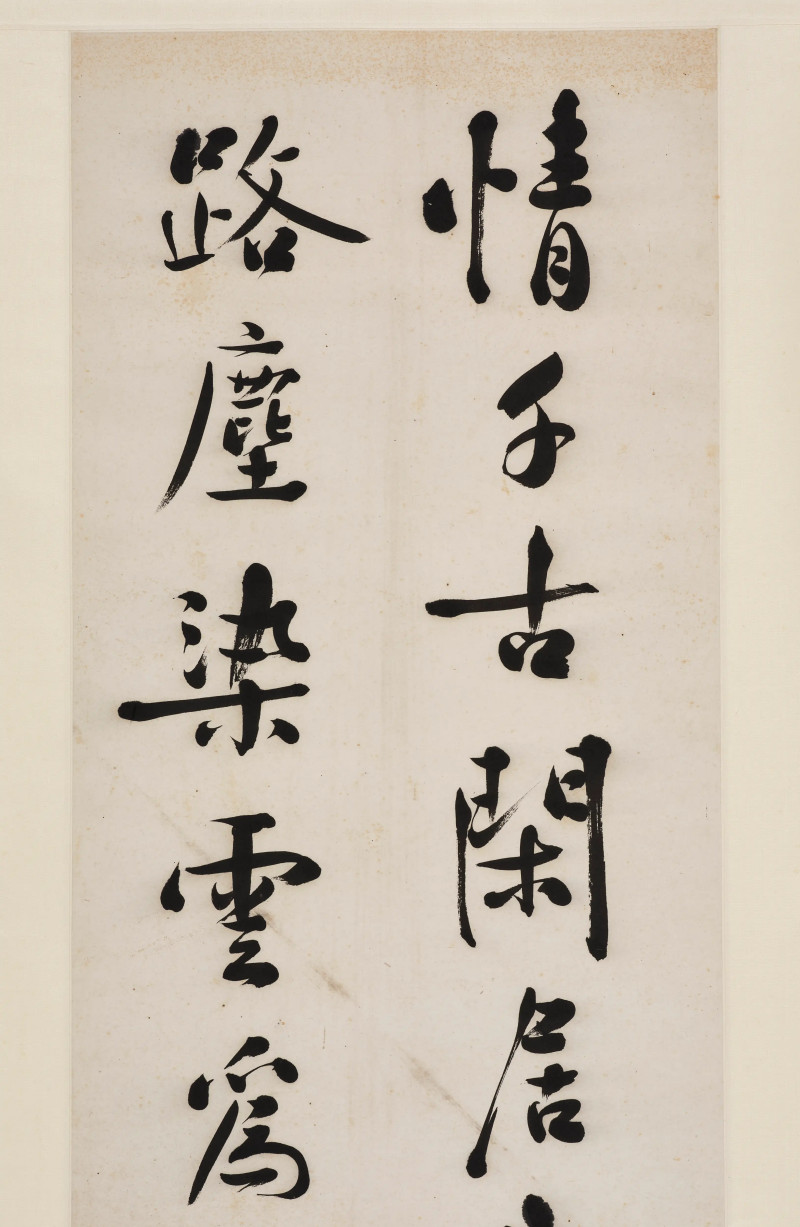 情千古閑居
路塵染雲為